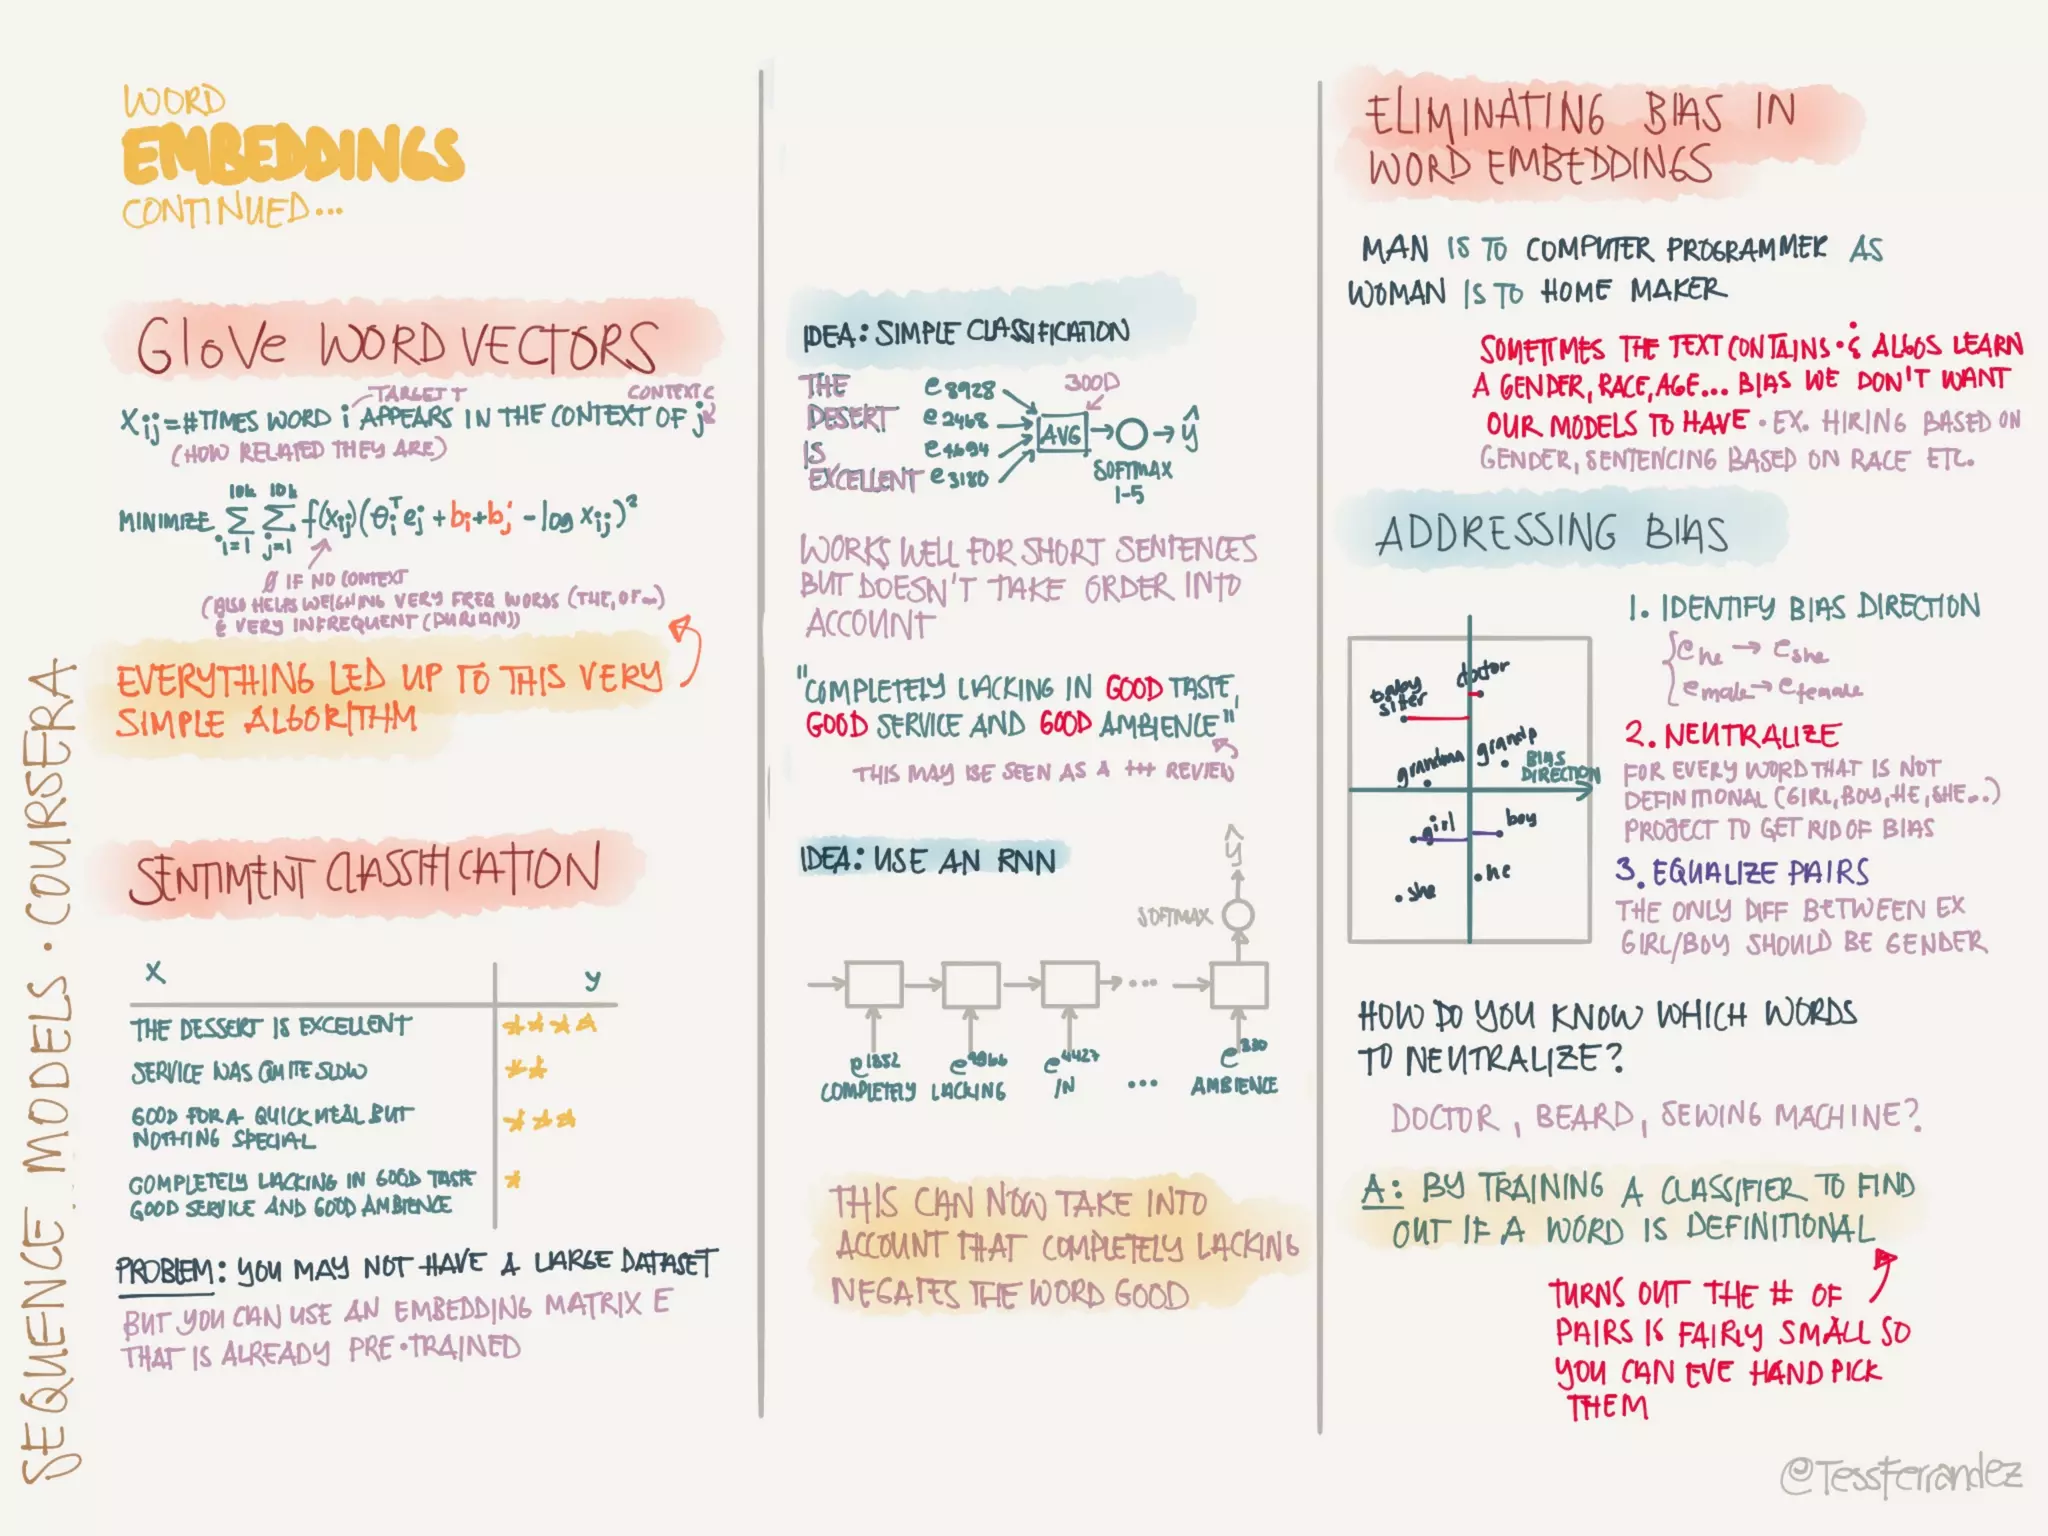 WORD
EMBEDDINGS
CONTINUED...
SEQUENCE MODELS · COURSERA
GloVe WORD VECTORS
TARGET T
CONTEXT C
Xij = #TIMES WORD i APPEARS IN THE CONTEXT OF j
(HOW RELATED THEY ARE)
10k 10k
MINIMIZE Σ Σ f(Xij)(θiᵀ ej + bi + bj' - log Xij)²
i=1 j=1
Ø IF NO CONTEXT
(ALSO HELPS WEIGHING VERY FREQ WORDS (THE, OF...)
& VERY INFREQUENT (DURIAN))
EVERYTHING LED UP TO THIS VERY
SIMPLE ALGORITHM
SENTIMENT CLASSIFICATION
X y
THE DESSERT IS EXCELLENT ★★★★
SERVICE WAS QUITE SLOW ★★
GOOD FOR A QUICK MEAL BUT ★★★
NOTHING SPECIAL
COMPLETELY LACKING IN GOOD TASTE ★
GOOD SERVICE AND GOOD AMBIENCE
PROBLEM: YOU MAY NOT HAVE A LARGE DATASET
BUT YOU CAN USE AN EMBEDDING MATRIX E
THAT IS ALREADY PRE·TRAINED
IDEA: SIMPLE CLASSIFICATION
THE e8928 300D
DESERT e2468
IS e4694 AVG ŷ
EXCELLENT e3180 SOFTMAX
1-5
WORKS WELL FOR SHORT SENTENCES
BUT DOESN'T TAKE ORDER INTO
ACCOUNT
"COMPLETELY LACKING IN GOOD TASTE,
GOOD SERVICE AND GOOD AMBIENCE"
THIS MAY BE SEEN AS A +++ REVIEW
IDEA: USE AN RNN
ŷ
SOFTMAX
...
e1852 e4966 e4427 e330
COMPLETELY LACKING IN ... AMBIENCE
THIS CAN NOW TAKE INTO
ACCOUNT THAT COMPLETELY LACKING
NEGATES THE WORD GOOD
ELIMINATING BIAS IN
WORD EMBEDDINGS
MAN IS TO COMPUTER PROGRAMMER AS
WOMAN IS TO HOME MAKER
SOMETIMES THE TEXT CONTAINS · & ALGOS LEARN
A GENDER, RACE, AGE... BIAS WE DON'T WANT
OUR MODELS TO HAVE · EX. HIRING BASED ON
GENDER, SENTENCING BASED ON RACE ETC.
ADDRESSING BIAS
baby
sitter
doctor
grandma
grandp
BIAS
DIRECTION
girl
boy
she
he
1. IDENTIFY BIAS DIRECTION
{ehe → eshe
emale → efemale
2. NEUTRALIZE
FOR EVERY WORD THAT IS NOT
DEFINITIONAL (GIRL, BOY, HE, SHE...)
PROJECT TO GET RID OF BIAS
3. EQUALIZE PAIRS
THE ONLY DIFF BETWEEN EX
GIRL/BOY SHOULD BE GENDER
HOW DO YOU KNOW WHICH WORDS
TO NEUTRALIZE?
DOCTOR, BEARD, SEWING MACHINE?
A: BY TRAINING A CLASSIFIER TO FIND
OUT IF A WORD IS DEFINITIONAL
TURNS OUT THE # OF
PAIRS IS FAIRLY SMALL SO
YOU CAN EVE HAND PICK
THEM
@TessFerrandez